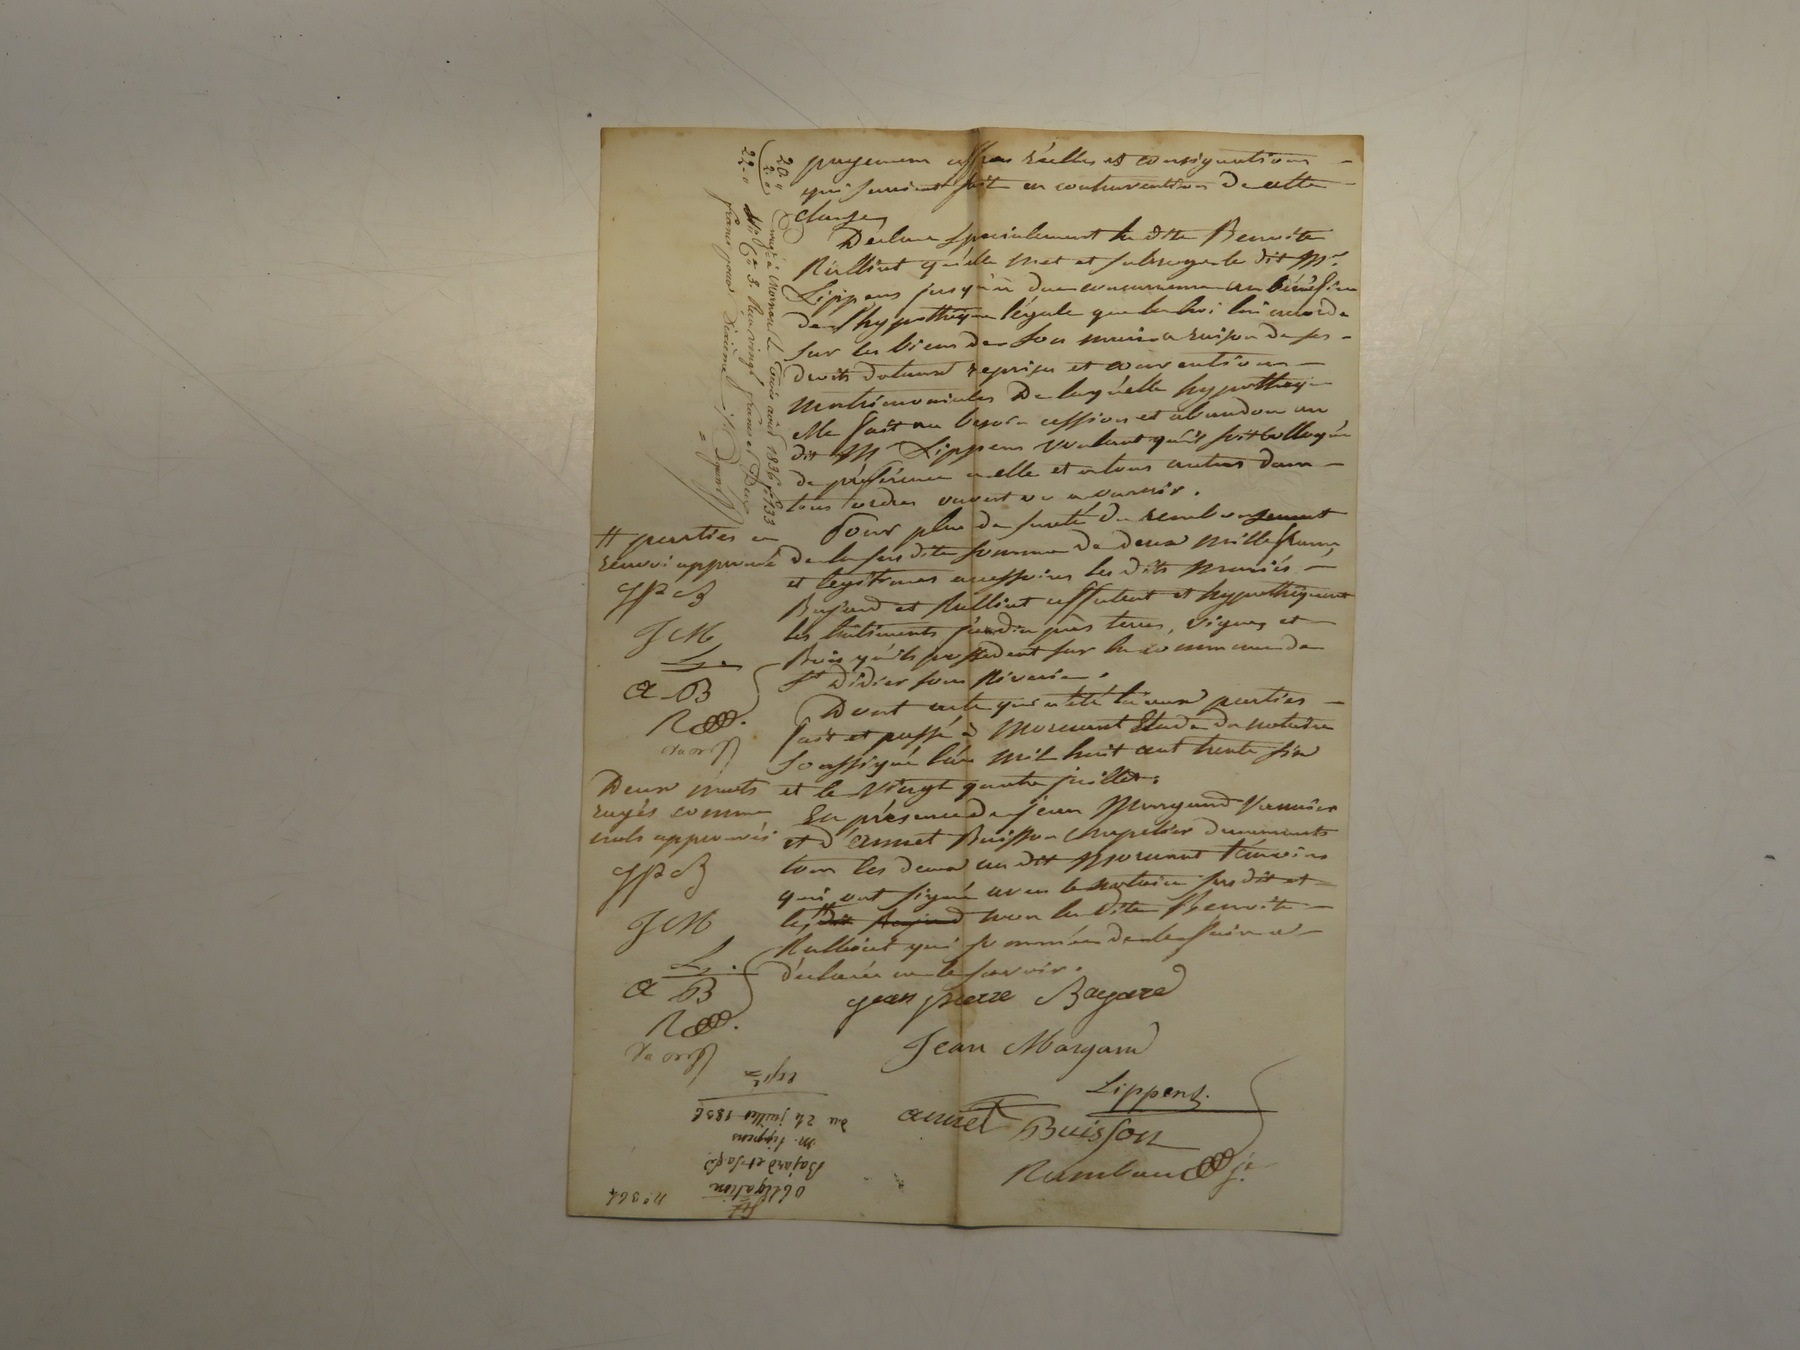 payement offres réelles et consignations
qui seroient fait en contravention de cette
clause
Déclare spécialement la dite Benoite
Rulliat qu'elle met et subroge le dit Mr
Lippens jusqu'à due concurrence au bénéfice
de l'hypothèque légale que la loi lui accorde
sur les biens de son mari a raison de ses
droits dotaux reprises et conventions
matrimoniales De laquelle hypothèque
elle fait au besoin cession et abandon au
dit Mr Lippens voulant qu'il soit colloqué
de préférence a elle et a tous autres dans
tous ordres ouvert ou a ouvrir.
Pour plus de sureté du remboursement
de la susdite somme de deux mille francs
et legitimes accessoires les dits mariés
Bajard et Rulliat affectent et hypothèquent
les batiments jardin près terres, vignes et
Bois qu'ils possedent sur la commune de
St Didier sous Riverie.
Dont acte qui a été lu aux parties
fait et passé à Mornant Etude du notaire
soussigné l'an mil huit cent trente six
et le vingt quatre juillet.
En présence de jean Margand vannier
et d'annet Buisson chapelier demeurants
tous les deux au dit Mornant témoins
qui ont signé avec le notaire susdit et
les dit Bajard non la dite Benoite
Rulliat qui sommée de le faire a
déclarée ne le savoir.
jean pierre Bagard
Jean Margand
Lippens.
annet Buisson
Rambaud je
# parties en
renvoi approuvé
JPB
JM
L.
a B
R
Deux mots
rayés comme
nuls approuvés
JPB
JM
L.
a B
R
20 "
2 "
22 "
Enregé à Mornant le trois août 1836 fo 133
Vo Ce 3. Reçu vingt francs et Deux
francs pour dixième
no 364
Obligation
Bajard et
M. Lippens
du 24 juillet 1836